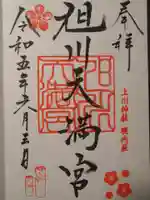 奉拝
旭川天満宮
上川神社 境内社
令和五年六月三日